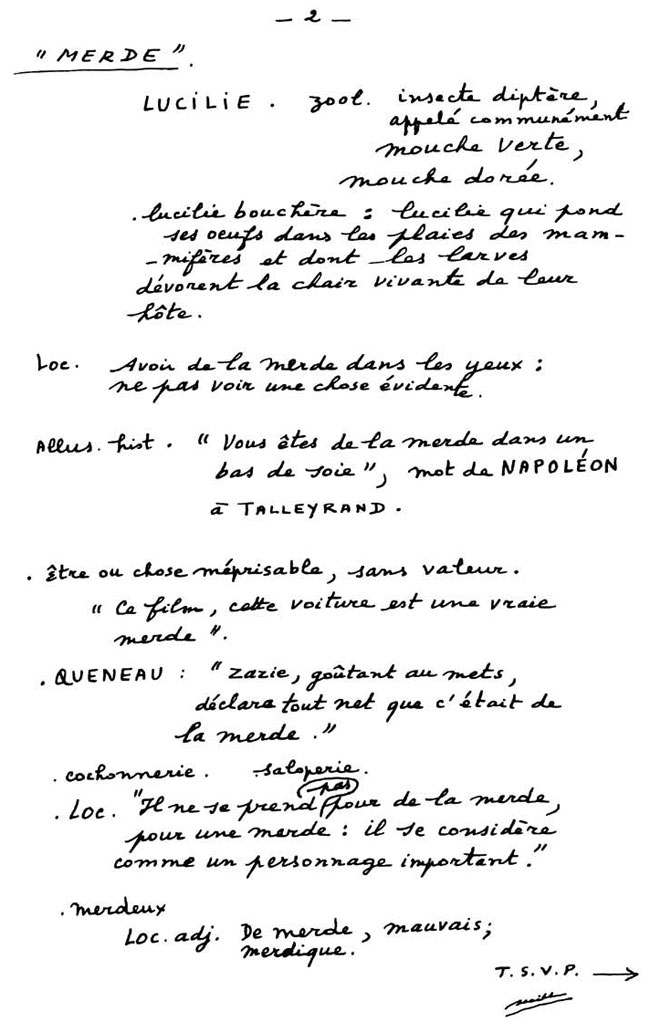 - 2 -
"MERDE".
LUCILIE. zool. insecte diptère,
appelé communément
mouche verte,
mouche dorée.
. lucilie bouchère : lucilie qui pond
ses oeufs dans les plaies des mam-
-mifères et dont les larves
dévorent la chair vivante de leur
hôte.
Loc. Avoir de la merde dans les yeux :
ne pas voir une chose évidente.
Allus. hist. "Vous êtes de la merde dans un
bas de soie", mot de NAPOLÉON
à TALLEYRAND.
. être ou chose méprisable, sans valeur.
"Ce film, cette voiture est une vraie
merde".
. QUENEAU : "Zazie, goûtant au mets,
déclara tout net que c'était de
la merde."
. cochonnerie. saloperie.
. Loc. "Il ne se prend pas pour de la merde,
pour une merde : il se considère
comme un personnage important."
. merdeux
Loc. adj. De merde, mauvais;
merdique.
T.S.V.P. →